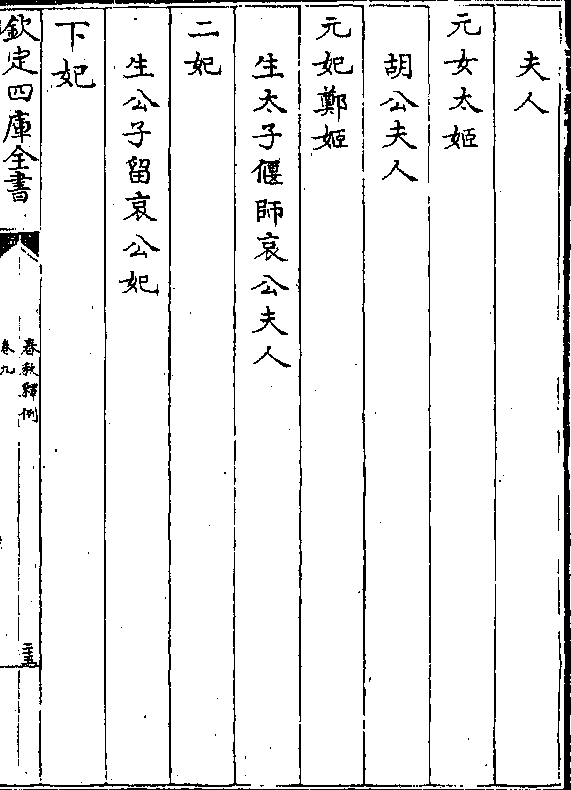 夫人
元女太姬
胡公夫人
元妃鄭姬
生太子偃師哀公夫人
二妃
生公子留哀公妃
下妃
欽定四庫全書
春秋釋例
卷九